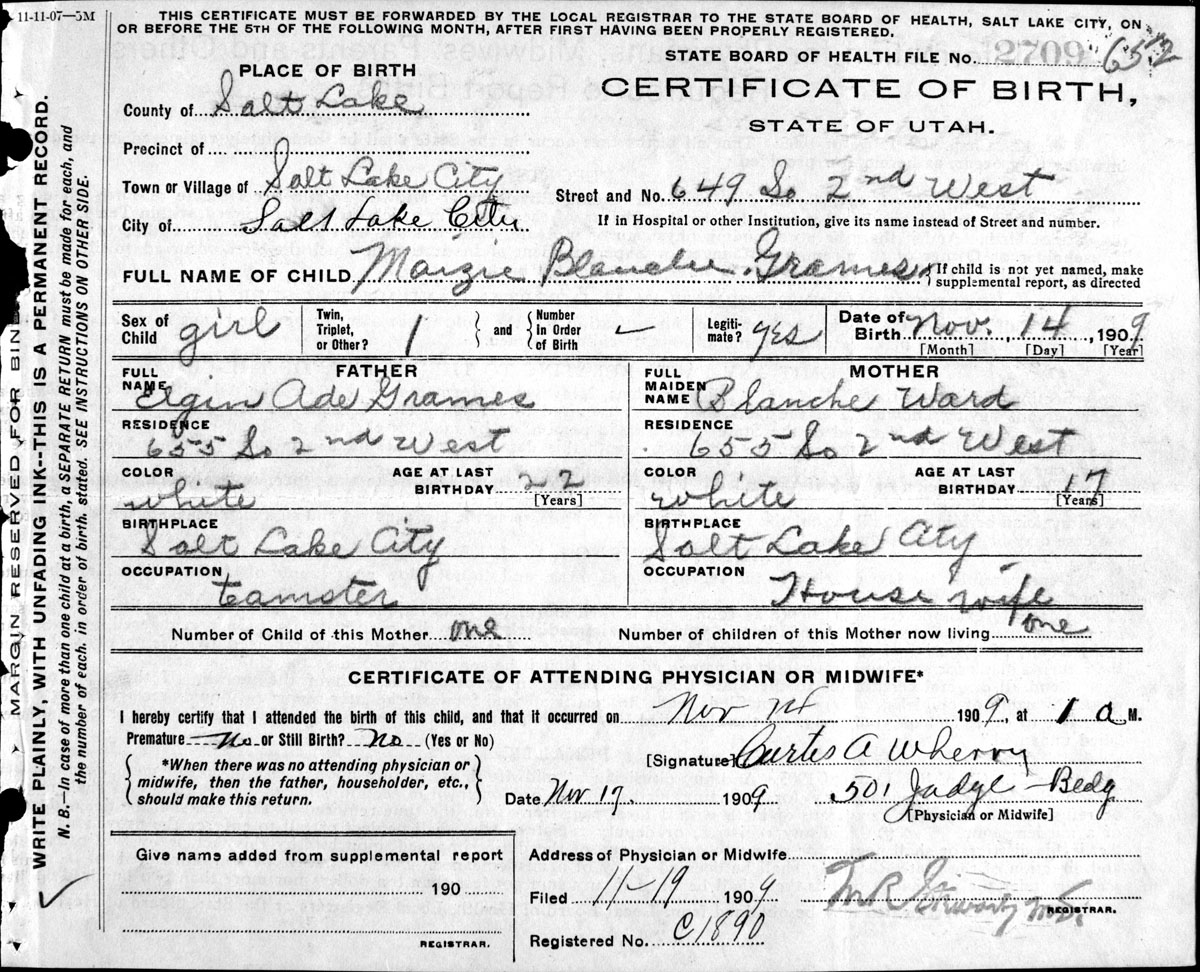 11-11-07—5M
THIS CERTIFICATE MUST BE FORWARDED BY THE LOCAL REGISTRAR TO THE STATE BOARD OF HEALTH, SALT LAKE CITY, ON
OR BEFORE THE 5TH OF THE FOLLOWING MONTH, AFTER FIRST HAVING BEEN PROPERLY REGISTERED.
STATE BOARD OF HEALTH FILE No. 2709 652
PLACE OF BIRTH
CERTIFICATE OF BIRTH,
STATE OF UTAH.
County of Salt Lake
Precinct of
Town or Village of Salt Lake City
Street and No. 649 So 2nd West
City of Salt Lake City
If in Hospital or other Institution, give its name instead of Street and number.
FULL NAME OF CHILD Maizie Blanche Grames
If child is not yet named, make
supplemental report, as directed
Sex of Child girl
Twin, Triplet, or Other? 1 and Number In Order of Birth –
Legitimate? yes
Date of Birth Nov. 14, 1909
[Month] [Day] [Year]
FATHER
FULL NAME Elgin Ade Grames
RESIDENCE
655 So 2nd West
COLOR
white
AGE AT LAST BIRTHDAY 22
[Years]
BIRTHPLACE
Salt Lake City
OCCUPATION
teamster
MOTHER
FULL MAIDEN NAME Blanche Ward
RESIDENCE
655 So 2nd West
COLOR
white
AGE AT LAST BIRTHDAY 17
[Years]
BIRTHPLACE
Salt Lake City
OCCUPATION
House wife
Number of Child of this Mother one
Number of children of this Mother now living one
CERTIFICATE OF ATTENDING PHYSICIAN OR MIDWIFE*
I hereby certify that I attended the birth of this child, and that it occurred on Nov 14 1909, at 1 a M.
Premature No or Still Birth? No (Yes or No)
[Signature] Curtis A Wherry
*When there was no attending physician or
midwife, then the father, householder, etc.,
should make this return.
Date Nov 17. 1909
501 Judge Bldg
[Physician or Midwife]
Give name added from supplemental report
190
REGISTRAR.
Address of Physician or Midwife
Filed 11-19 1909
REGISTRAR.
Registered No. C1890
MARGIN RESERVED FOR BINDING
WRITE PLAINLY, WITH UNFADING INK--THIS IS A PERMANENT RECORD.
N. B.—In case of more than one child at a birth, a SEPARATE RETURN must be made for each, and
the number of each, in order of birth, stated. SEE INSTRUCTIONS ON OTHER SIDE.